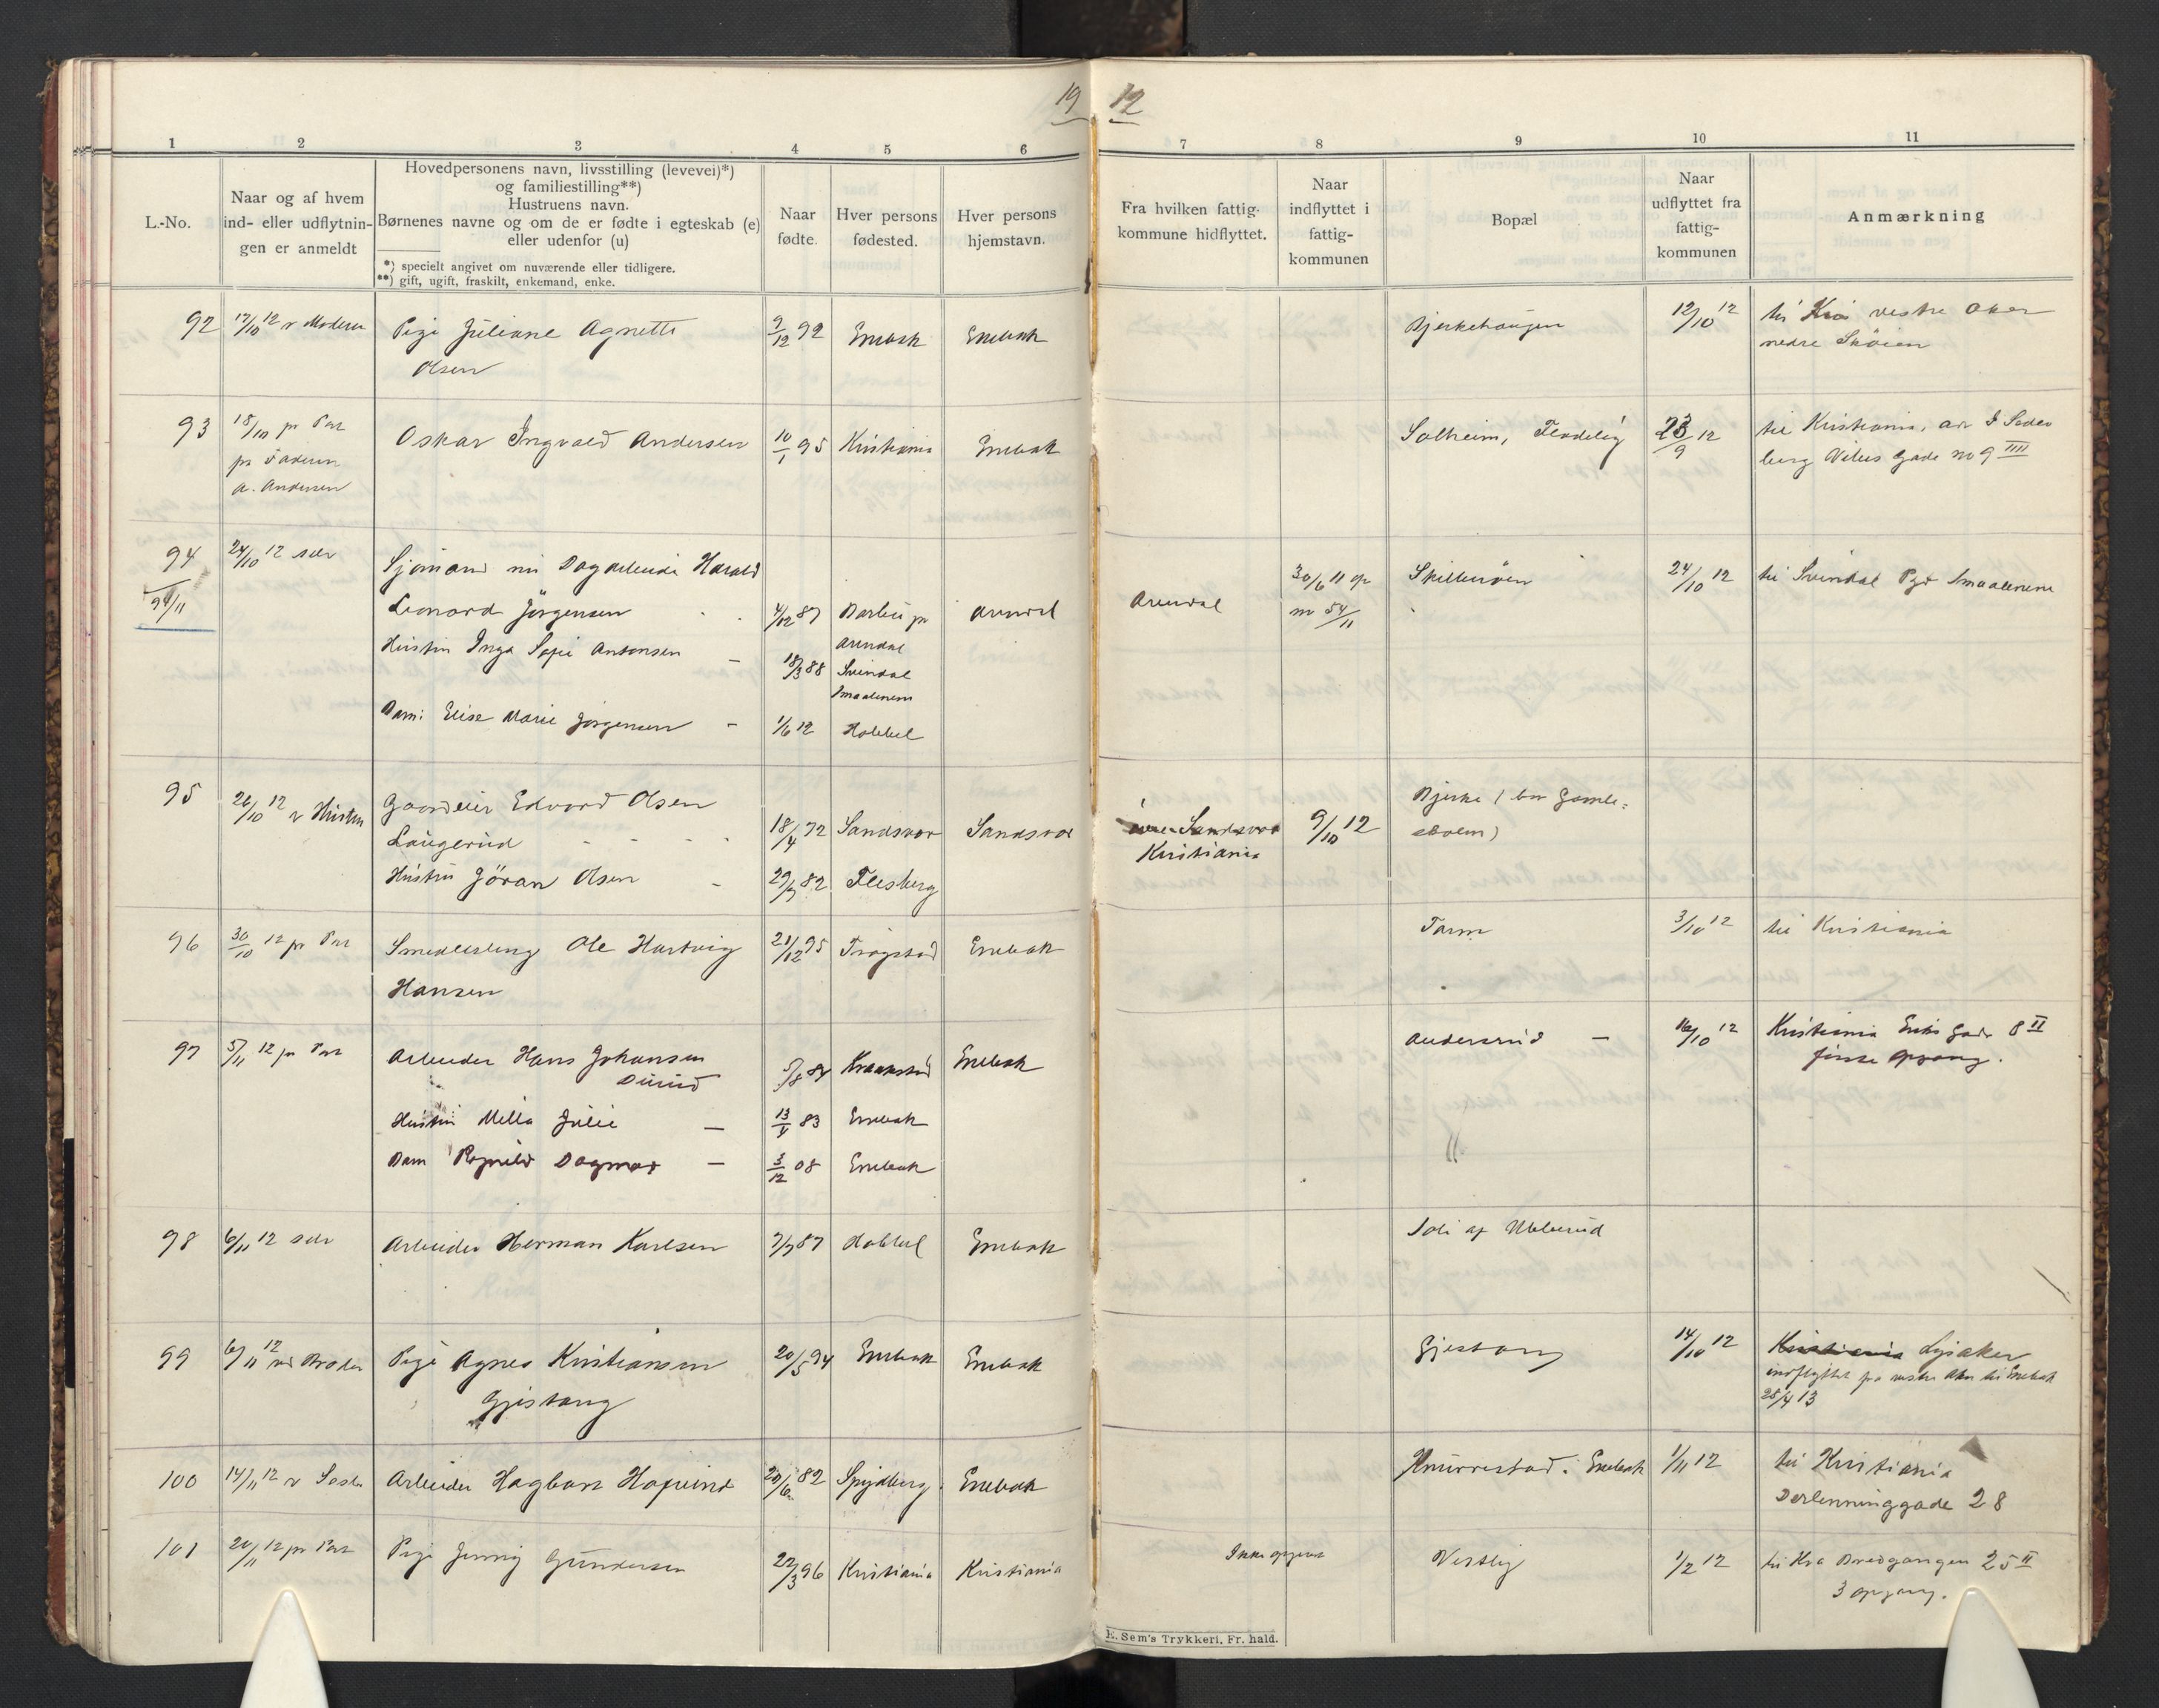 19 12
1 2 3 4 5 6 7 8 9 10 11
L.-No.
Naar og af hvem
ind- eller udflytnin-
gen er anmeldt
Hovedpersonens navn, livsstilling (levevei)*)
og familiestilling**)
Hustruens navn.
Børnenes navne og om de er fødte i egteskab (e)
eller udenfor (u)
*) specielt angivet om nuværende eller tidligere.
**) gift, ugift, fraskilt, enkemand, enke.
Naar
fødte.
Hver persons
fødested.
Hver persons
hjemstavn.
Fra hvilken fattig-
kommune hidflyttet.
Naar
indflyttet i
fattig-
kommunen
Bopæl
Naar
udflyttet fra
fattig-
kommunen
Anmærkning
92 17/10 12 v Moderen Pige Juliane Agnette 9/12 92 Enebak Enebak Bjerkehaugen 12/10 12 til Kria vestre Aker
Olsen nedre Sköien
93 18/10 pr Part Oskar Ingvald Andersen 10/1 95 Kristiania Enebak Solheim, 23/9 12 til Kristiania, adr
pr Faderen gade no 9 IIII
A. Andersen
94 24/10 12 selv Sjömand nu Dagarbeider Harald 30/6 11 Skilleröen 24/10 12 til Svindal Pgd Smaalenene
54/11 Leonard Jörgensen 4/12 87 pr Arendal Arendal no 54/11
Hustru Inga Sofie Antonsen – 18/3 88 Arendal
Svindal
Smaalenene
Barn: Elise Marie Jörgensen – 1/6 12 Hobbel
95 26/10 12 v Hustru Gaardeier Edvard Olsen Bjerke (bor Gamle-
Laugerud 18/4 72 Sandsvær Sandsvær Sandsvær 9/10 12 skolen)
Kristiania
Hustru Göran Olsen – 29/7 82 Flesberg
96 30/10 12 pr Part Smedlerling Ole Hartvig 21/12 95 Trögstad Enebak Tarm 3/10 12 til Kristiania
Hansen
97 5/11 12 pr Part Arbeider Hans Johansen 5/8 84 Kraakstad Enebak Andersrud – 16/10 12 Kristiania Eriks gade 8 II
Durud förste opgang.
Hustru Milla Julie – 13/4 83 Enebak
Barn Ragnild Dagmar – 3/12 08 Enebak
98 6/11 12 selv Arbeider Herman Karlsen 7/7 87 Hobbel Enebak Soli af Ubberud
99 6/11 12 ved Broder Pige Agnes Kristiansen 20/5 94 Enebak Enebak Gjestang 14/10 12 Kristiania Lysaker
Gjistang indflyttet fra vestre Aker til Enebak
28/4 13
100 14/11 12 v Söster Arbeider Hagbart 20/6 82 Spydberg Enebak Knurrestad. Enebak 1/11 12 til Kristiania
28
101 20/11 12 pr Part Pige Jenny Gundersen 22/3 96 Kristiania Kristiania Ikke opgivet Vestby 1/2 12 til Kra Bredgangen 25 II
3 opgang.
E. Sem's Trykkeri, Fr. hald.